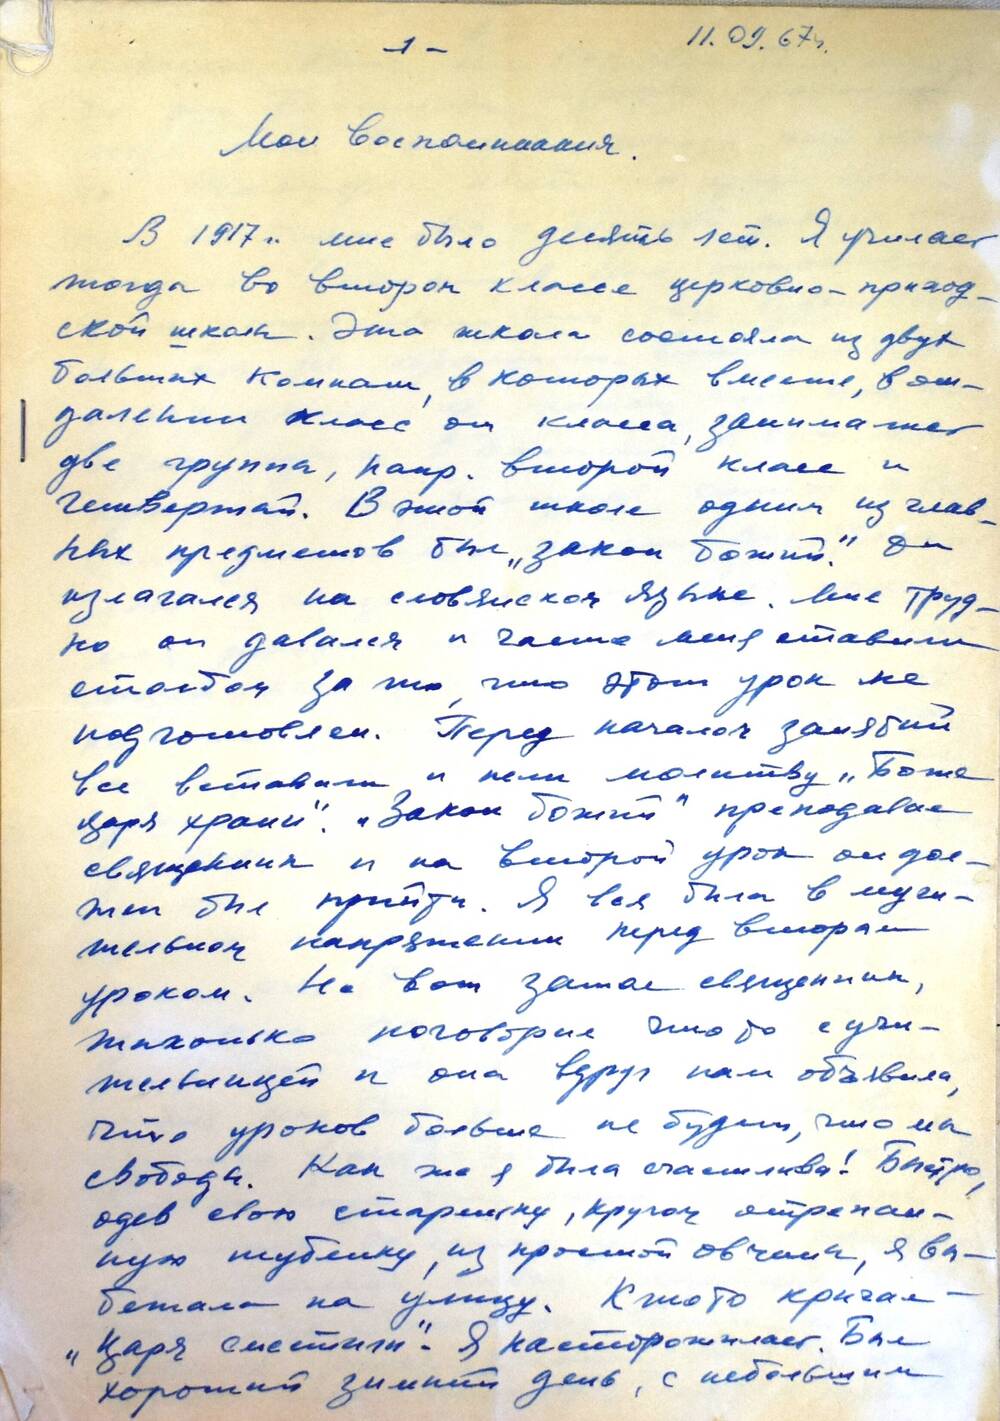 -1-
11.09.67г.
Мои воспоминания.
В 1917г. мне было десять лет. Я училась
тогда во втором классе церковно-приход-
ской школы. Эта школа состояла из двух
больших комнат, в которых вместе, в от-
далении класс от класса, занимались
две группы, напр. второй класс и
четвертый. В этой школе одним из глав-
ных предметов был „закон божий". Он
излагался на словянском языке. Мне труд-
но он давался и часто меня ставили
столбом за то, что этот урок не
подготовлен. Перед началом занятий
все вставали и пели молитву „Боже
царя храни". „Закон божий" преподавал
священник и на второй урок он дол-
жен был прийти. Я вся была в мучи-
тельном напряжении перед вторым
уроком. Но вот зашел священник,
тихонько поговорил что то с учи-
тельницей и она вдруг нам объявила,
что уроков больше не будет, что мы
свободны. Как же я была счастлива! Быстро,
одев свою старенькую, кругом отрепан-
ную шубенку, из простой овчины, я вы-
бежала на улицу. Кто то кричал-
„Царя сместили". Я насторожилась. Был
хороший зимний день, с небольшим